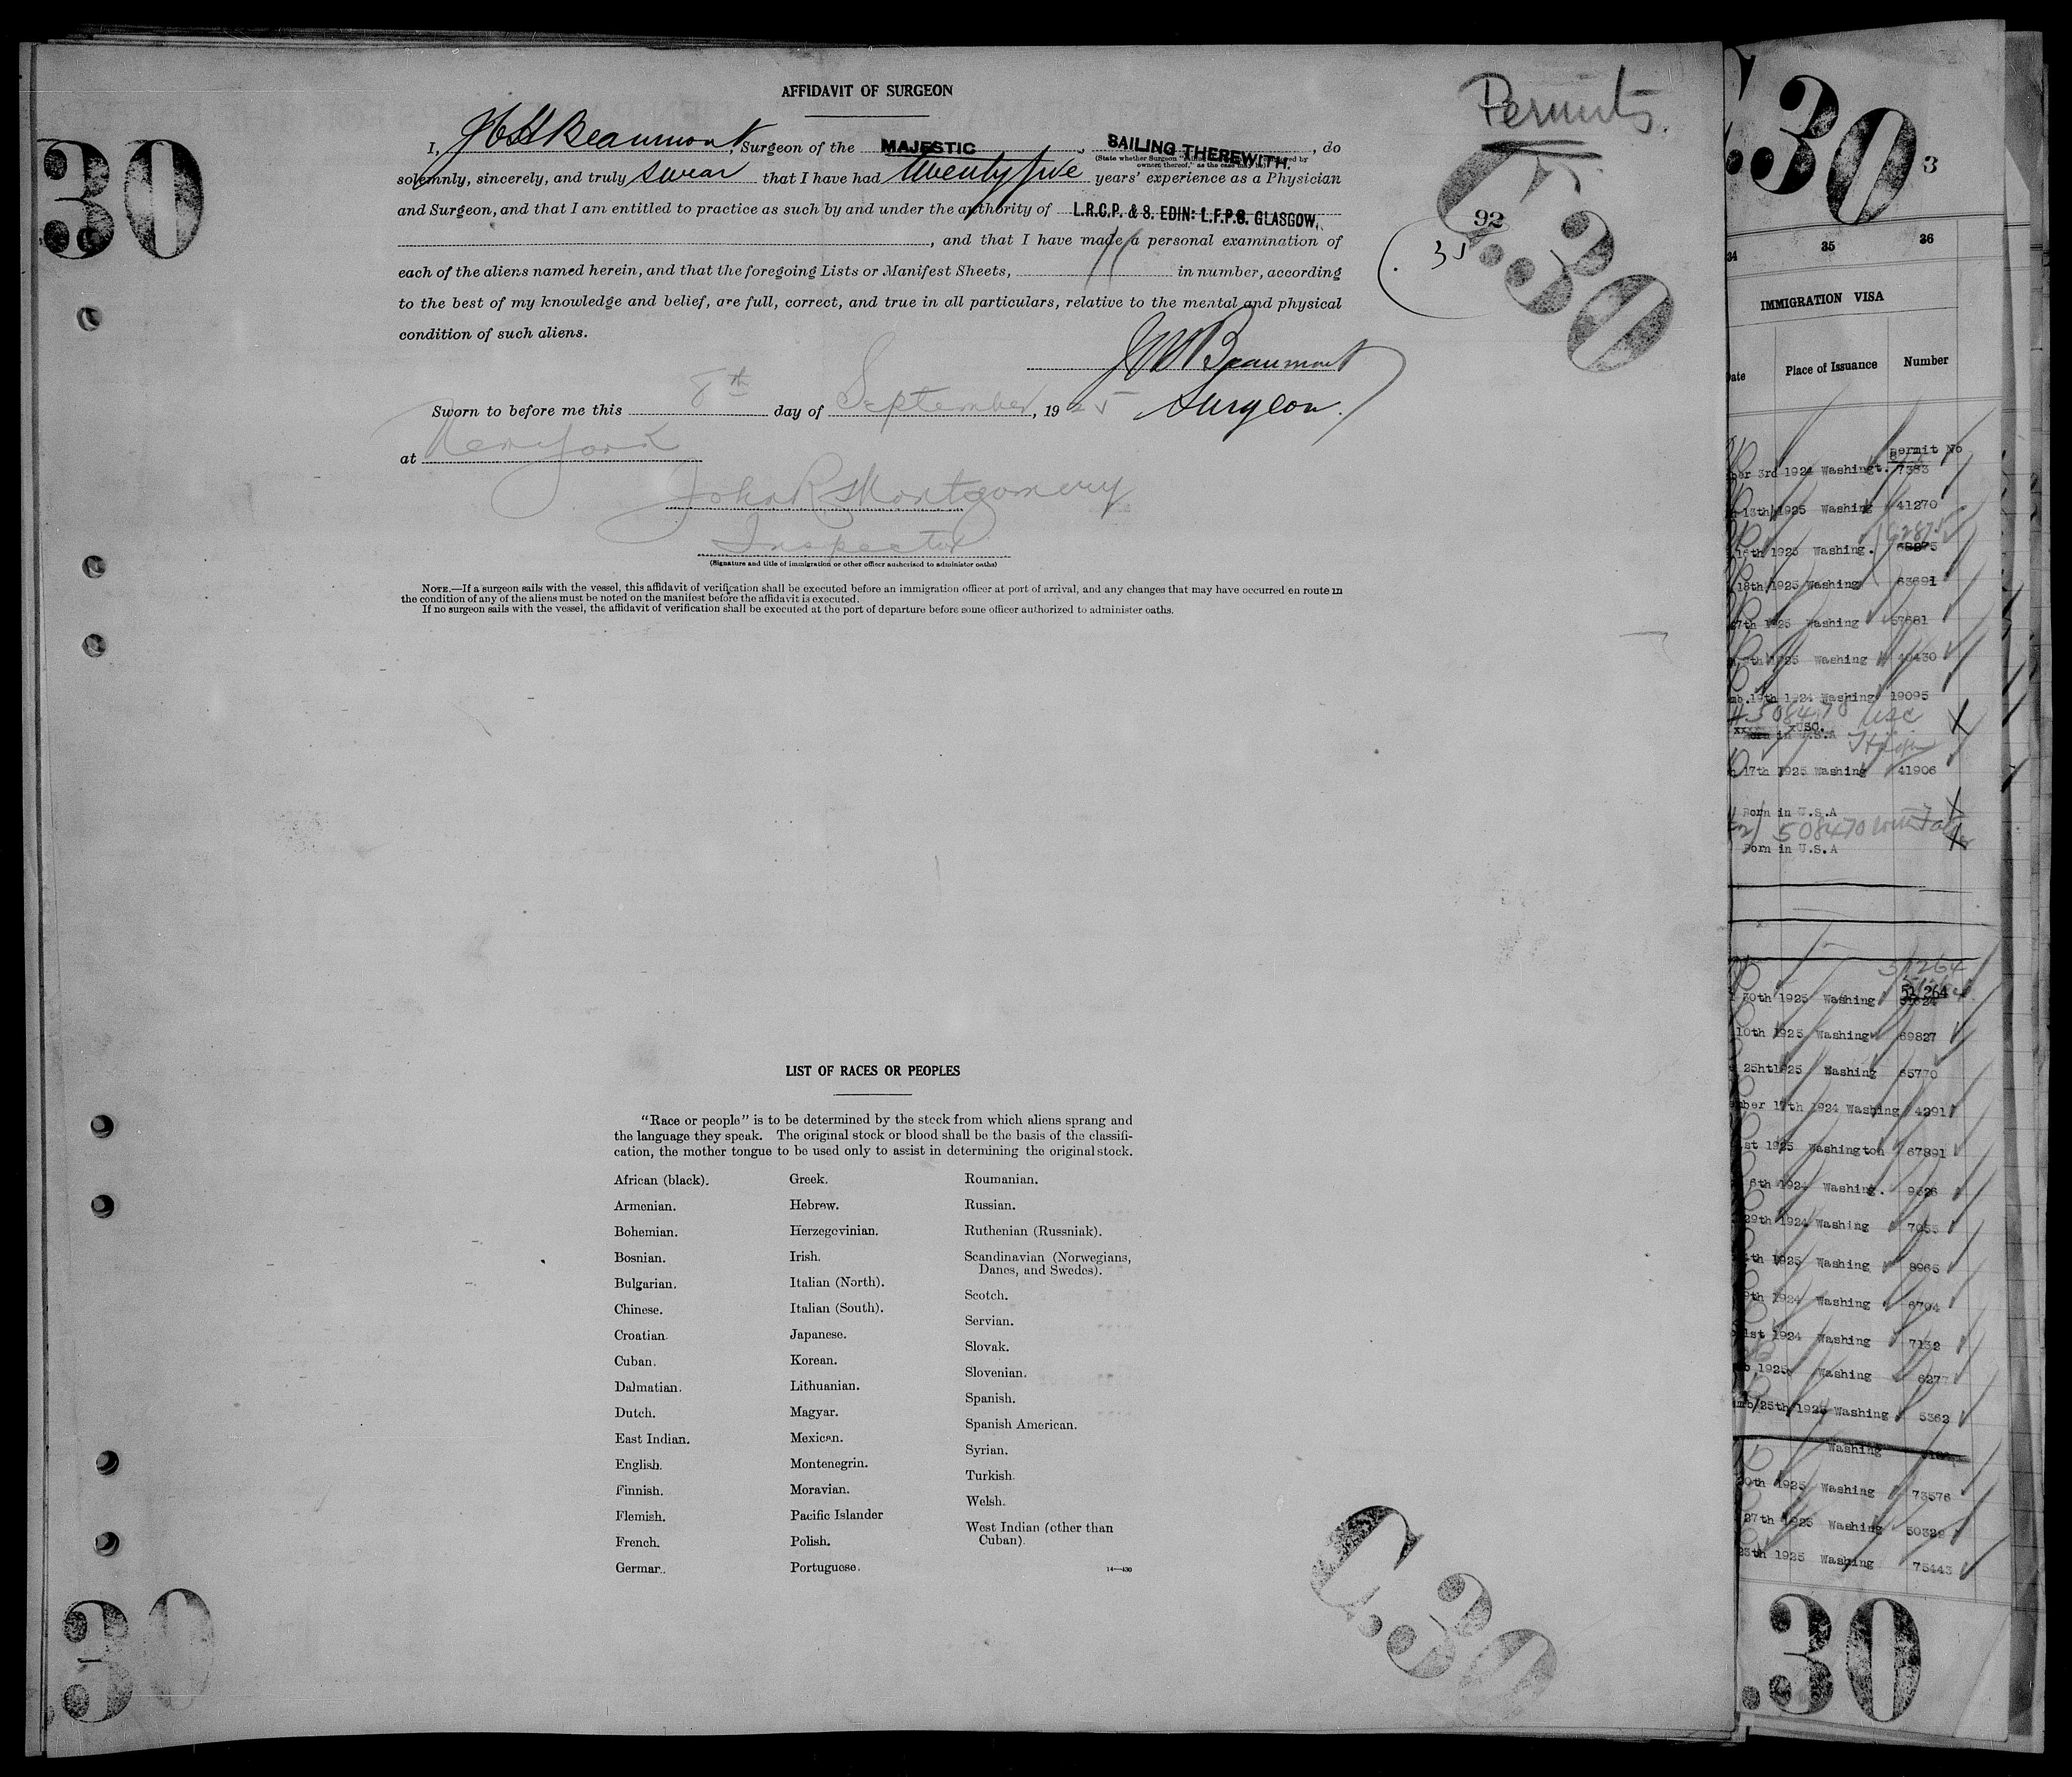 AFFIDAVIT OF SURGEON
Permits.
30
I, J C H Beaumont, Surgeon of the MAJESTIC, SAILING THEREWITH, do
(State whether Surgeon owners thereof," as the case may be)
solemnly, sincerely, and truly swear that I have had twenty five years' experience as a Physician
and Surgeon, and that I am entitled to practice as such by and under the authority of L.R.C.P. & S. EDIN: L.F.P.S. GLASGOW.
, and that I have made a personal examination of
each of the aliens named herein, and that the foregoing Lists or Manifest Sheets, 11 in number, according
to the best of my knowledge and belief, are full, correct, and true in all particulars, relative to the mental and physical
condition of such aliens.
C.30
92
J C H Beaumont
Surgeon.
Sworn to before me this 8th day of September, 1925
at New York
John R Montgomery
Inspector
(Signature and title of immigration or other officer authorized to administer oaths)
NOTE.—If a surgeon sails with the vessel, this affidavit of verification shall be executed before an immigration officer at port of arrival, and any changes that may have occurred en route in
the condition of any of the aliens must be noted on the manifest before the affidavit is executed.
If no surgeon sails with the vessel, the affidavit of verification shall be executed at the port of departure before some officer authorized to administer oaths.
LIST OF RACES OR PEOPLES
"Race or people" is to be determined by the stock from which aliens sprang and
the language they speak. The original stock or blood shall be the basis of the classifi-
cation, the mother tongue to be used only to assist in determining the original stock.
African (black).
Armenian.
Bohemian.
Bosnian.
Bulgarian.
Chinese.
Croatian.
Cuban.
Dalmatian.
Dutch.
East Indian.
English.
Finnish.
Flemish.
French.
German.
Greek.
Hebrew.
Herzegovinian.
Irish.
Italian (North).
Italian (South).
Japanese.
Korean.
Lithuanian.
Magyar.
Mexican.
Montenegrin.
Moravian.
Pacific Islander
Polish.
Portuguese.
Roumanian.
Russian.
Ruthenian (Russniak).
Scandinavian (Norwegians,
Danes, and Swedes).
Scotch.
Servian.
Slovak.
Slovenian.
Spanish.
Spanish American.
Syrian.
Turkish.
Welsh.
West Indian (other than
Cuban).
14—430
30
C.30
.30
3
34 35 36
IMMIGRATION VISA
Date Place of Issuance Number
Permit No
3rd 1924 Washingt. 7383
13th 1925 Washing 41270
16th 1925 Washing.
18th 1925 Washing 63691
7th 1925 Washing 57681
th 1925 Washing 40430
19th 1924 Washing 19095
508470 USC
Born in U.S.A
17th 1925 Washing 41906
Born in U.S.A
508470
Born in U.S.A
51264
30th 1925 Washing 51264
10th 1925 Washing 69827
25ht1925 Washing 65770
ber 17th 1924 Washing 4291
1st 1925 Washington 67891
6th 1924 Washing. 9326
29th 1924 Washing 7055
th 1925 Washing 8965
9th 1924 Washing 6704
1st 1924 Washing 7132
1925 Washing 6277
25th/192 Washing 5362
Washing
20th 1925 Washing 73576
27th 1925 Washing 50329
23th 1925 Washing 75443
.30